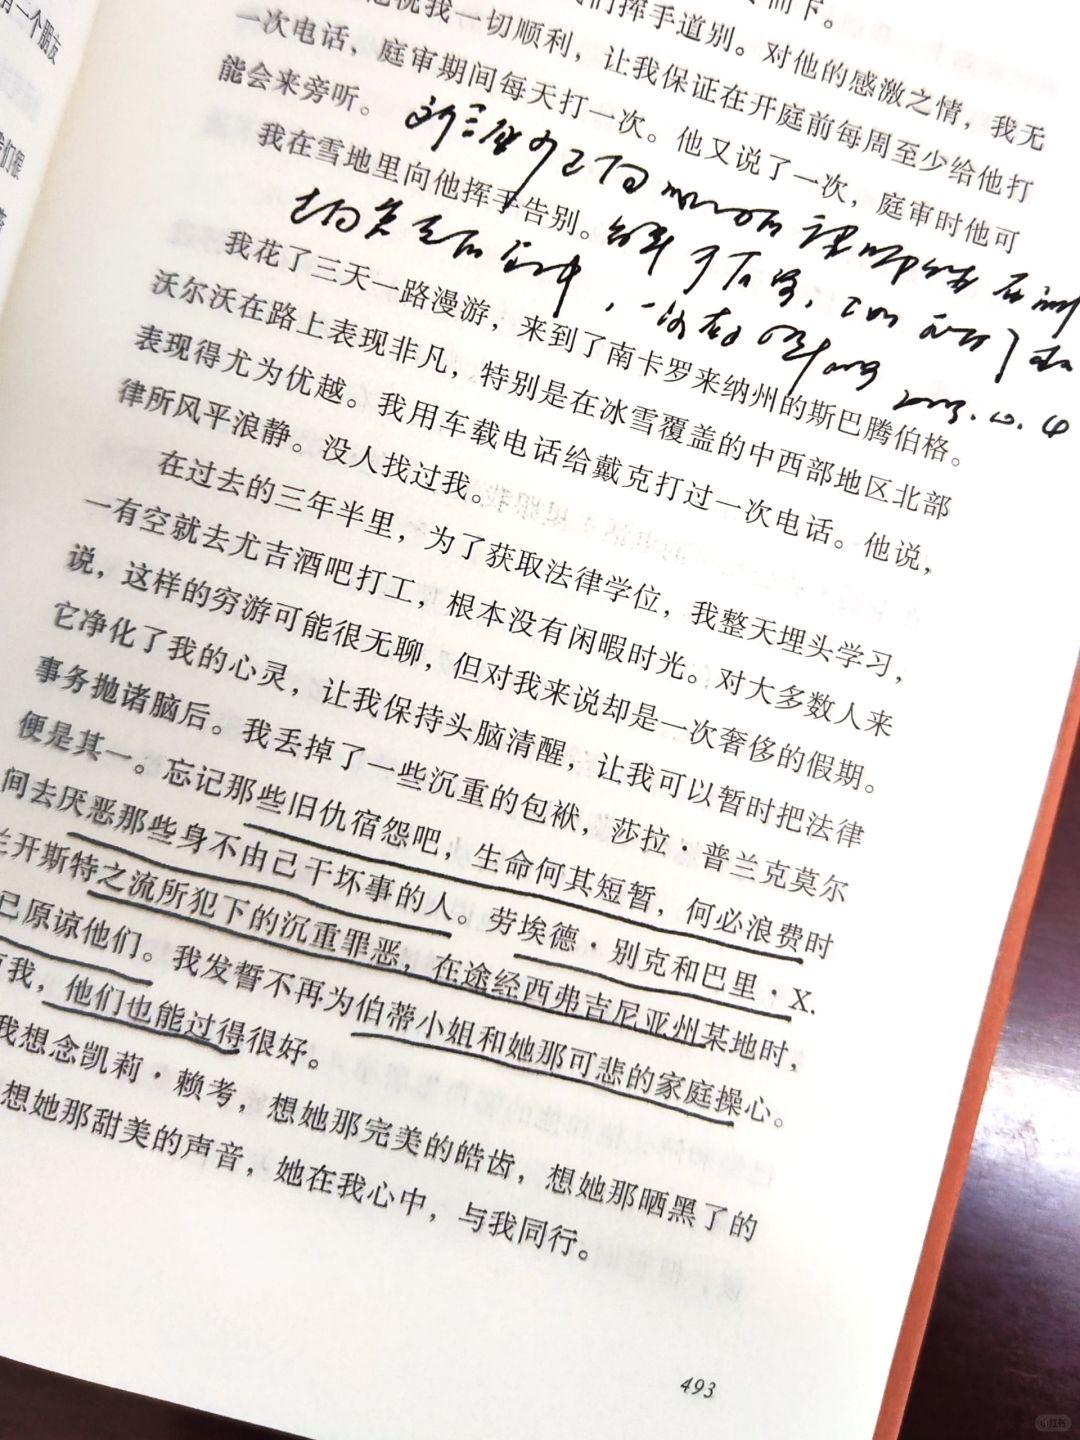 有一个朋友
而下。
们挥手道别。对他的感激之情，我无
祝我一切顺利，让我保证在开庭前每周至少给他打
一次电话，庭审期间每天打一次。他又说了一次，庭审时他可
能会来旁听。
我在雪地里向他挥手告别。
我花了三天一路漫游，来到了南卡罗来纳州的斯巴腾伯格。
沃尔沃在路上表现非凡，特别是在冰雪覆盖的中西部地区北部
表现得尤为优越。我用车载电话给戴克打过一次电话。他说，
律所风平浪静。没人找过我。
在过去的三年半里，为了获取法律学位，我整天埋头学习，
一有空就去尤吉酒吧打工，根本没有闲暇时光。对大多数人来
说，这样的穷游可能很无聊，但对我来说却是一次奢侈的假期。
它净化了我的心灵，让我保持头脑清醒，让我可以暂时把法律
事务抛诸脑后。我丢掉了一些沉重的包袱，莎拉·普兰克莫尔
便是其一。忘记那些旧仇宿怨吧，生命何其短暂，何必浪费时
间去厌恶那些身不由己干坏事的人。劳埃德·别克和巴里·X.
兰开斯特之流所犯下的沉重罪恶，在途经西弗吉尼亚州某地时，
已原谅他们。我发誓不再为伯蒂小姐和她那可悲的家庭操心。
有我，他们也能过得很好。
我想念凯莉·赖考，想她那完美的皓齿，想她那晒黑了的
想她那甜美的声音，她在我心中，与我同行。
493
小红书